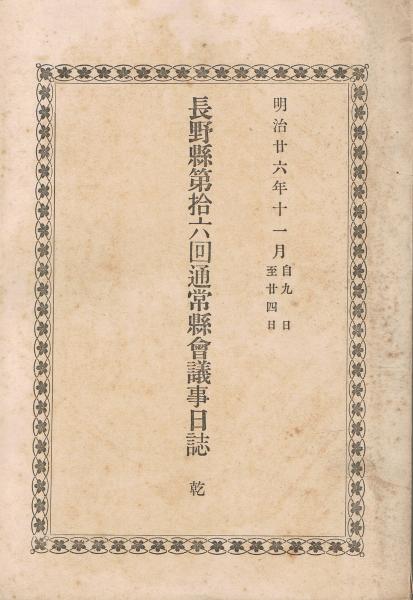 明治廿六年十一月自九日
至廿四日
長野縣第拾六回通常縣會議事日誌 乾